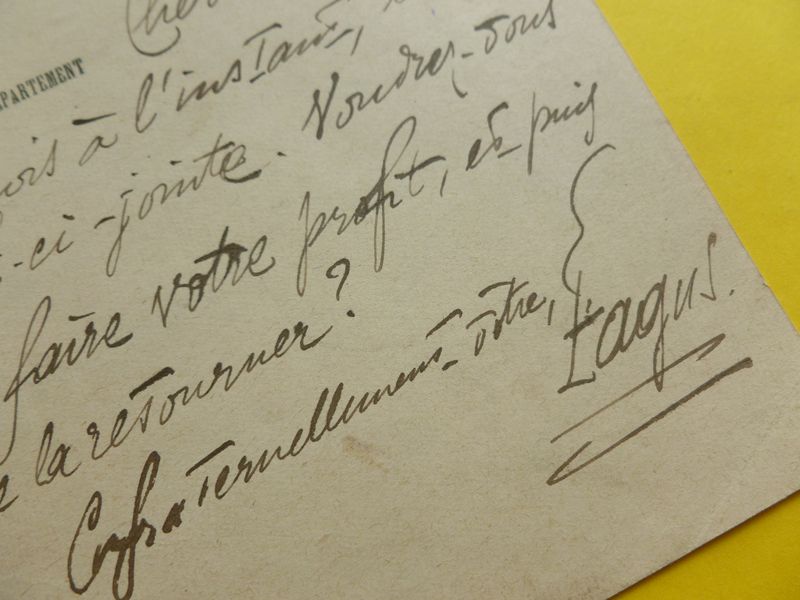 Cher
PARTEMENT
çois à l'instant,
ci-jointe. Voudrez-vous
faire votre profit, et puis
la retourner?
Confraternellement vôtre,
Fagus.